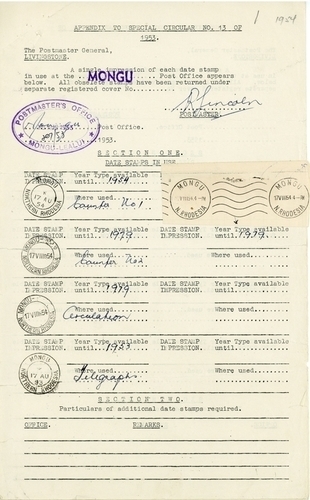 1 1954
APPENDIX TO SPECIAL CIRCULAR NO. 13 OF
1953.
The Postmaster General,
LIVINGSTONE.
A single impression of each date stamp
in use at the ... MONGU ... Post Office appears
below. All obsolete have been returned under
separate registered cover No...........
R Lincoln
POSTMASTER
POSTMASTER'S OFFICE
MONGU-LEALUI
Post Office.
1953.
SECTION ONE.
DATE STAMPS IN USE
DATE STAMP IMPRESSION. Year Type available until... 1954
Where used.
Counter No 1
MONGU
N. RHODESIA
MONGU
17 VIII 54
N. RHODESIA
DATE STAMP IMPRESSION. Year Type available until... 1979
Where used..
Counter No 2
17 VIII 54
DATE STAMP IMPRESSION. Year Type available until... 1979
Where used...
DATE STAMP IMPRESSION. Year Type available until... 1979
Where used.
Circulation
17 VIII 54
DATE STAMP IMPRESSION. Year Type available until....
Where used....
DATE STAMP IMPRESSION. Year Type available until... 1953
Where used.
Telegraphs
MONGU
17 AU
53
NORTHERN RHODESIA
DATE STAMP IMPRESSION. Year Type available until....
Where used....
SECTION TWO.
Particulars of additional date stamps required.
OFFICE. REMARKS.